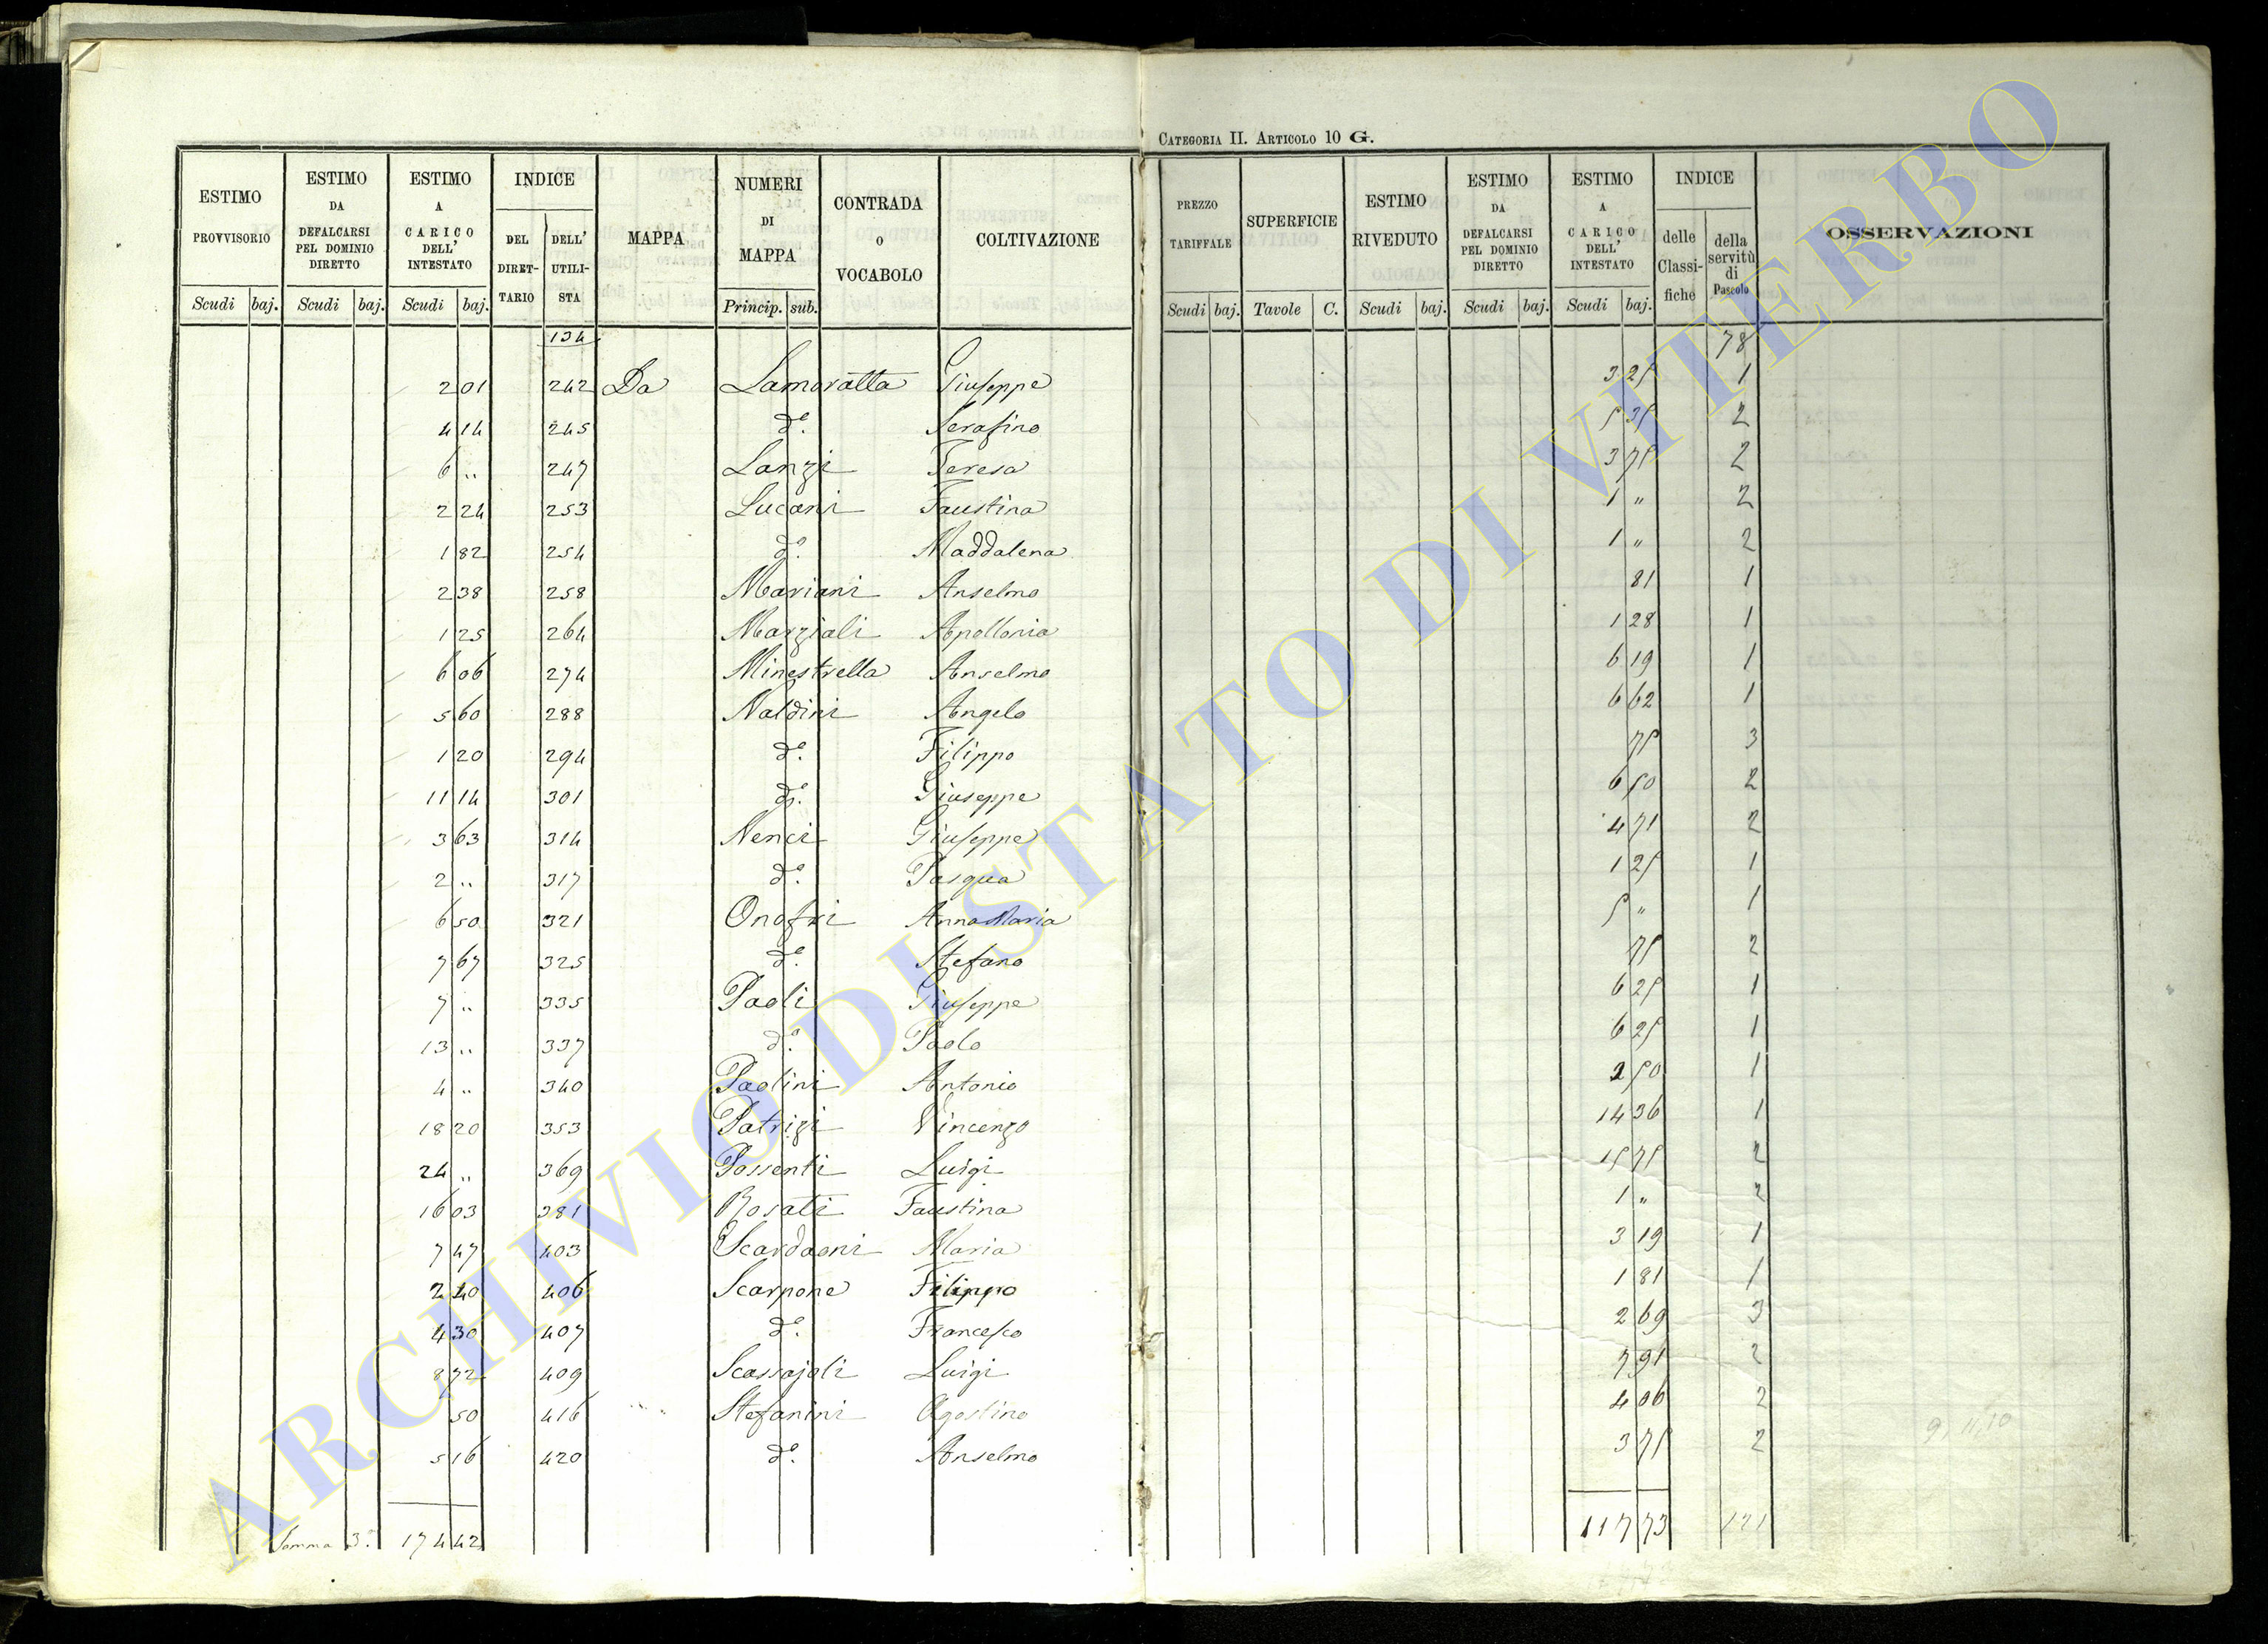 CATEGORIA II. ARTICOLO 10 G.
ESTIMO PROVVISORIO | ESTIMO DA DEFALCARSI PEL DOMINIO DIRETTO | ESTIMO A CARICO DELL' INTESTATO | INDICE DEL DIRETTARIO | DELL' UTILISTA | MAPPA | NUMERI DI MAPPA | CONTRADA O VOCABOLO | COLTIVAZIONE | PREZZO TARIFFALE | SUPERFICIE | ESTIMO RIVEDUTO | ESTIMO DA DEFALCARSI PEL DOMINIO DIRETTO | ESTIMO A CARICO DELL' INTESTATO | INDICE delle Classifiche | della servitù di Pascolo | OSSERVAZIONI
Scudi baj. Scudi baj. Scudi baj. Princip. sub. Scudi baj. Tavole C. Scudi baj. Scudi baj. Scudi baj.
134 78
2 01 242 Da Lamoratta Giuseppe 3 25 1
4 14 245 do. Serafino 5 35 2
6 .. 247 Lanzi Teresa 3 75 2
2 24 253 Lucani Faustina 1 " 2
1 82 254 do. Maddalena 1 " 2
2 38 258 Mariani Anselmo 81 1
1 25 264 Marziali Apollonia 1 28 1
6 06 274 Minestrella Anselmo 6 19 1
5 60 288 Naldini Angelo 6 62 1
1 20 294 do. Filippo 75 3
11 14 301 do. Giuseppe 6 50 2
3 63 314 Nenci Giuseppe 4 71 2
2 .. 317 do. Pasqua 1 25 1
6 50 321 Onofri Anna Maria 5 " 1
7 67 325 do. Stefano 75 2
7 .. 335 Paoli Giuseppe 6 25 1
13 .. 337 do. Paolo 6 25 1
4 .. 340 Paolini Antonio 2 50 1
18 20 353 Patrizi Vincenzo 14 36 1
24 .. 369 Possenti Luigi 15 75 2
16 03 381 Rosati Faustina 1 " 2
7 47 403 Scardaoni Maria 3 19 1
2 40 406 Scarpone Filippo 1 81 1
4 30 407 do. Francesco 2 69 3
8 72 409 Scassajoli Luigi 7 91 2
50 416 Stefanini Agostino 4 06 2
5 16 420 do. Anselmo 3 75 2
9, 11, 10
Somma 3a. 174 42 117 73 121
ARCHIVIO DI STATO DI VITERBO